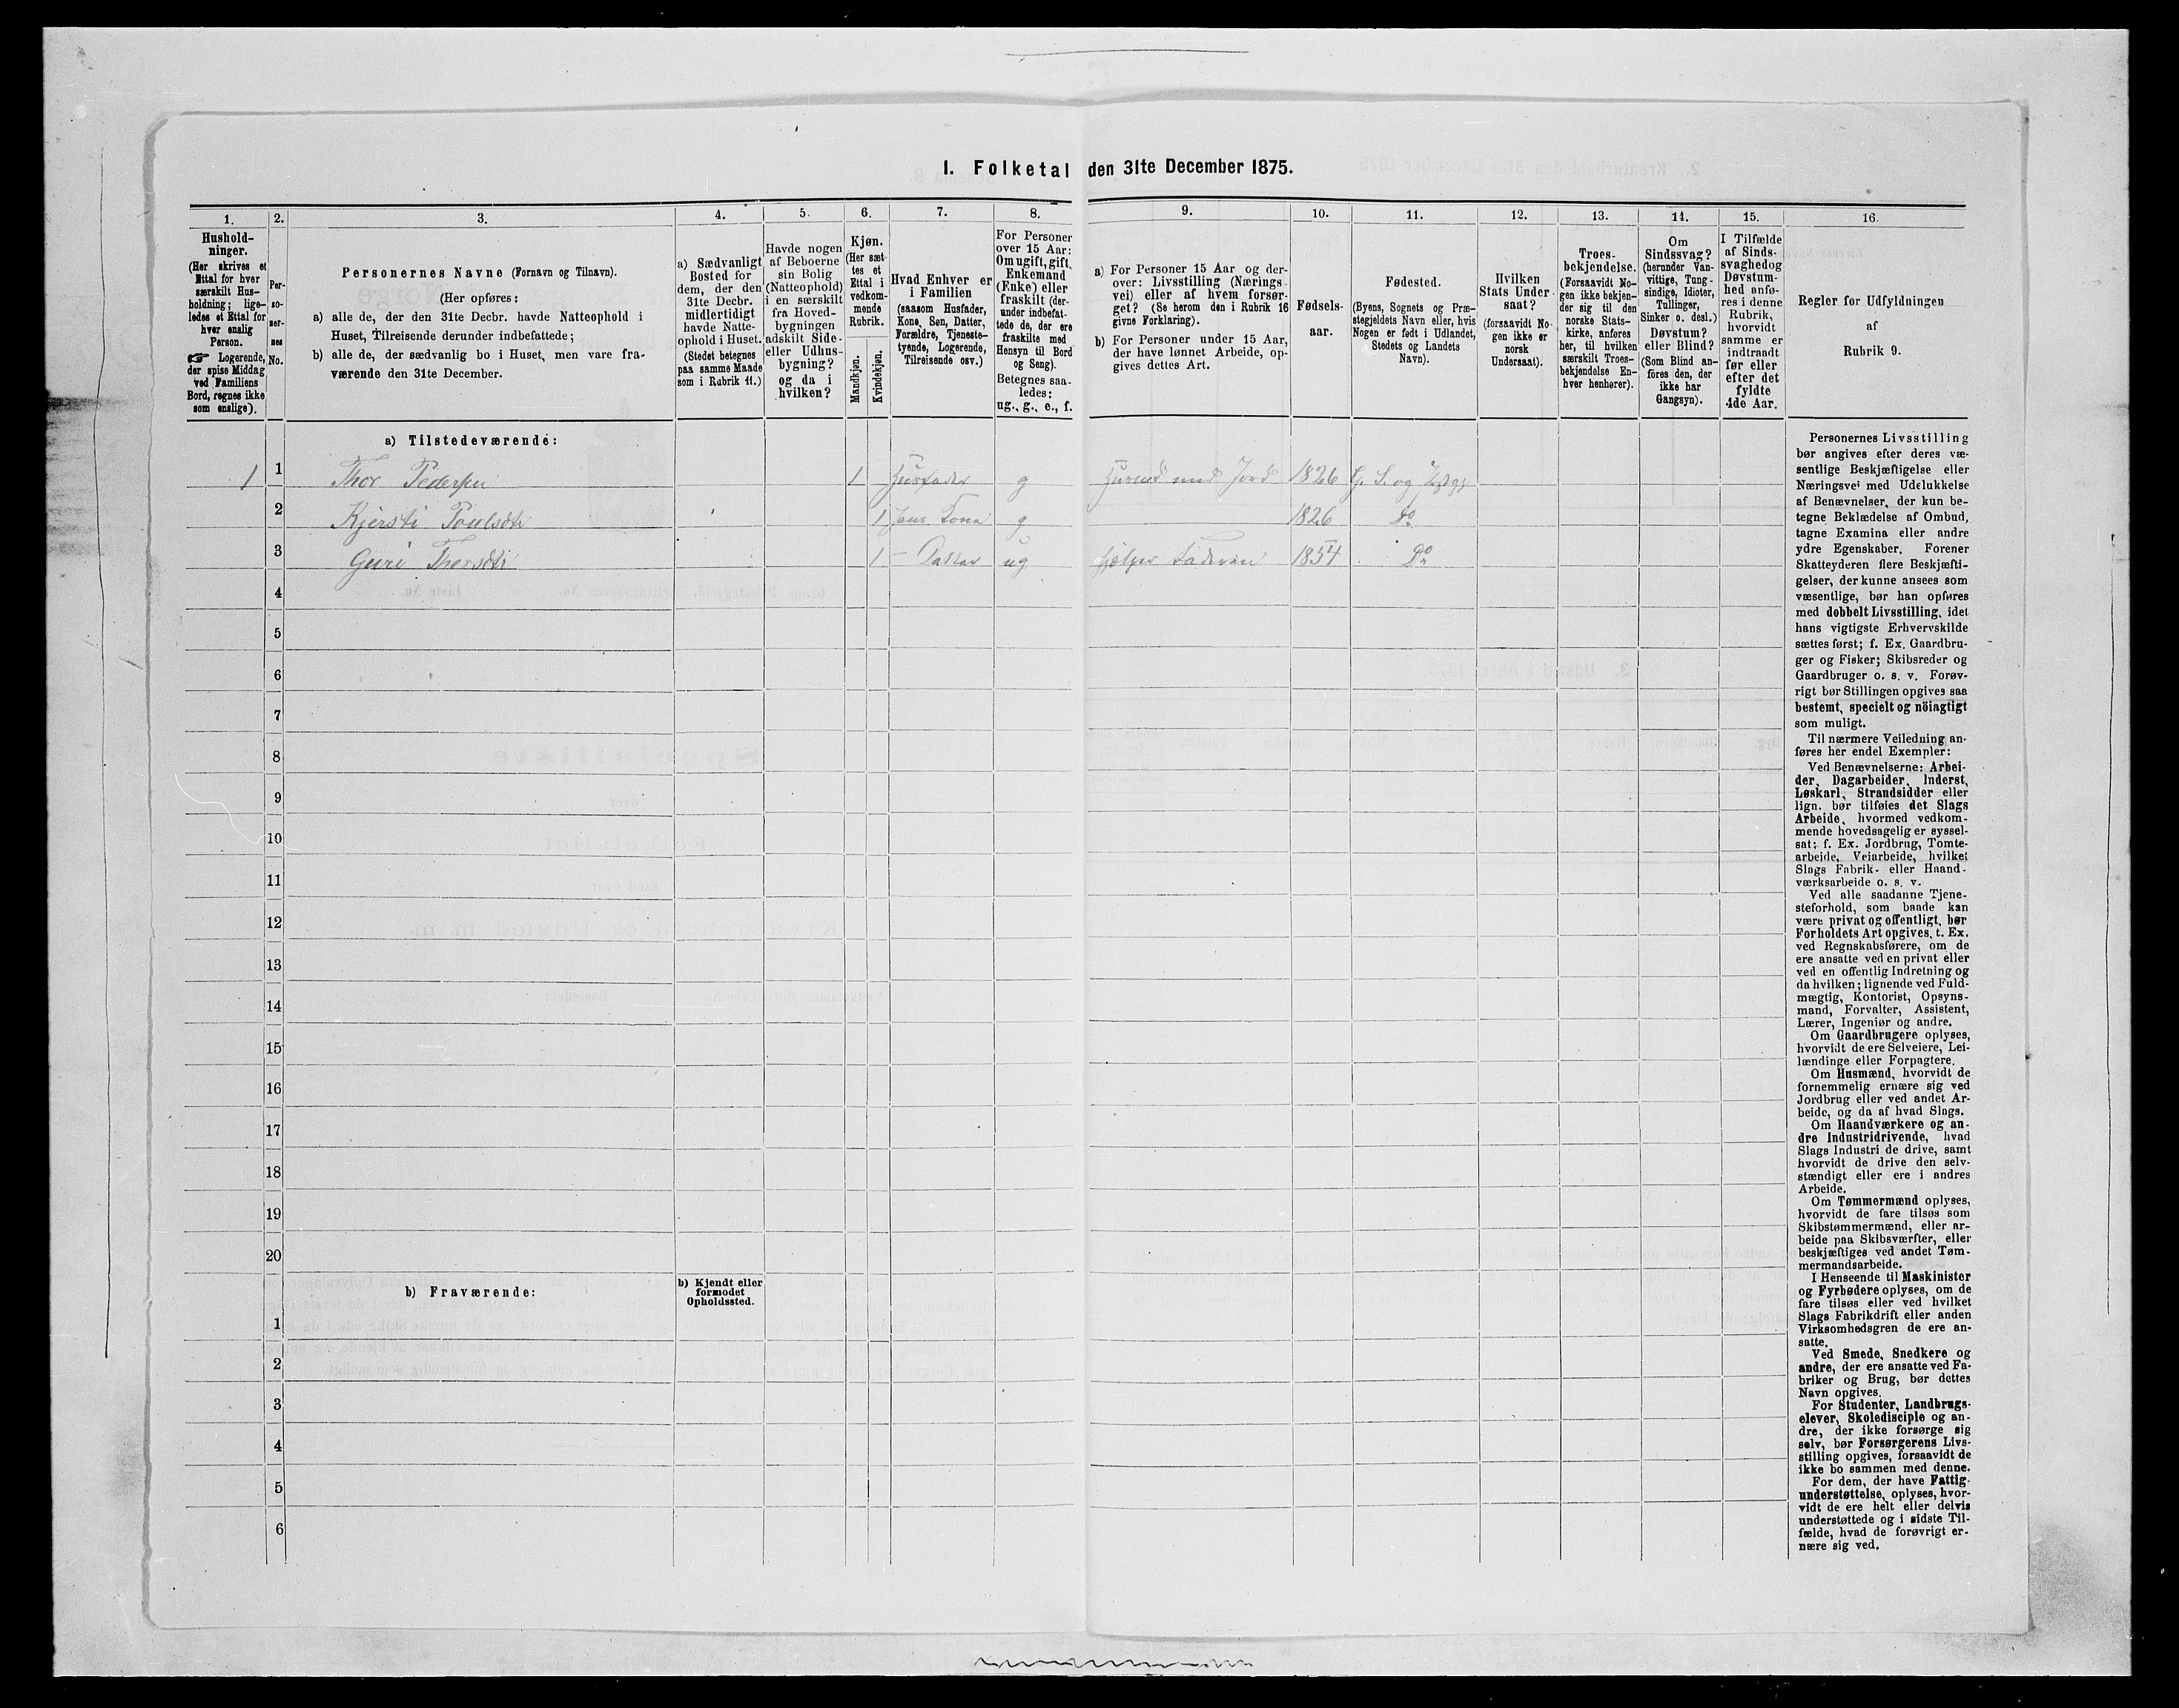 1. Folketal den 31te December 1875.
1. 2. 3. 4. 5. 6. 7. 8. 9. 10. 11. 12. 13. 14. 15. 16.
Hushold-
ninger.
(Her skrives et
Ettal for hver
særskilt Hus-
holdning; lige-
ledes et Ettal for
hver enslig
Person.
☞ Logerende,
der spise Middag
ved Familiens
Bord, regnes ikke
som enslige).
Per-
so-
ner-
nes
No.
Personernes Navne (Fornavn og Tilnavn).
(Her opføres:
a) alle de, der den 31te Decbr. havde Natteophold i
Huset, Tilreisende derunder indbefattede;
b) alle de, der sædvanlig bo i Huset, men vare fra-
værende den 31te December.
a) Sædvanligt
Bosted for
dem, der den
31te Decbr.
midlertidigt
havde Natte-
ophold i Huset.
(Stedet betegnes
paa samme Maade
som i Rubrik 11.)
Havde nogen
af Beboerne
sin Bolig
(Natteophold)
i en særskilt
fra Hoved-
bygningen
adskilt Side-
eller Udhus-
bygning?
og da i
hvilken?
Kjøn.
(Her sæt-
tes et
Ettal i
vedkom-
mende
Rubrik.
Mandkjøn.
Kvindekjøn.
Hvad Enhver er
i Familien
(saasom Husfader,
Kone, Søn, Datter,
Forældre, Tjeneste-
tyende, Logerende,
Tilreisende osv.)
For Personer
over 15 Aar:
Om ugift, gift,
Enkemand
(Enke) eller
fraskilt (der-
under indbefat-
tede de, der ere
fraskilte med
Hensyn til Bord
og Seng).
Betegnes saa-
ledes:
ug., g., e., f.
a) For Personer 15 Aar og der-
over: Livsstilling (Nærings-
vei) eller af hvem forsør-
get? (Se herom den i Rubrik 16
givne Forklaring).
b) For Personer under 15 Aar,
der have lønnet Arbeide, op-
gives dettes Art.
Fødsels-
aar.
Fødested.
(Byens, Sognets og Præ-
stegjeldets Navn eller, hvis
Nogen er født i Udlandet,
Stedets og Landets
Navn).
Hvilken
Stats Under-
saat?
(forsaavidt No-
gen ikke er
norsk
Undersaat).
Troes-
bekjendelse.
(Forsaavidt No-
gen ikke bekjen-
der sig til den
norske Stats-
kirke, anføres
her, til hvilken
særskilt Troes-
bekjendelse En-
hver henhører).
Om
Sindssvag?
(herunder Van-
vittige, Tung-
sindige, Idioter,
Tullinger,
Sinker o. desl.)
Døvstum?
eller Blind?
(Som Blind an-
føres den, der
ikke har
Gangsyn).
I Tilfælde
af Sinds-
svaghedog
Døvstum-
hed anfø-
res i denne
Rubrik,
hvorvidt
samme er
indtraadt
før eller
efter det
fyldte
4de Aar.
Regler for Udfyldningen
af
Rubrik 9.
a) Tilstedeværende:
1 1 Thor Pedersen 1 Husfader g Husmd med Jord 1826
2 Kjersti Poulsdtr 1 Kona g 1826 Do
3 Guri Thorsdtr 1 - Datter ug hjelper Faderen 1854 Do
4
5
6
7
8
9
10
11
12
13
14
15
16
17
18
19
20
b) Fraværende:
b) Kjendt eller
formodet
Opholdssted.
1
2
3
4
5
6
Personernes Livsstilling
bør angives efter deres væ-
sentlige Beskjæftigelse eller
Næringsvei med Udelukkelse
af Benævnelser, der kun be-
tegne Beklædelse af Ombud,
tagne Examina eller andre
ydre Egenskaber. Forener
Skatteyderen flere Beskjæfti-
gelser, der kunne ansees som
væsentlige, bør han opføres
med dobbelt Livsstilling, idet
hans vigtigste Erhvervskilde
sættes først; f. Ex. Gaardbru-
ger og Fisker; Skibsreder og
Gaardbruger o. s. v. Forøv-
rigt bør Stillingen opgives saa
bestemt, specielt og nöiagtigt
som muligt.
Til nærmere Veiledning an-
føres her endel Exempler:
Ved Benævnelserne: Arbei-
der, Dagarbeider, Inderst,
Løskarl, Strandsidder eller
lign. bør tilføies det Slags
Arbeide, hvormed vedkom-
mende hovedsagelig er syssel-
sat; f. Ex. Jordbrug, Tomte-
arbeide, Veiarbeide, hvilket
Slags Fabrik- eller Haand-
værksarbeide o. s. v.
Ved alle saadanne Tjene-
steforhold, som baade kan
være privat og offentligt, bør
Forholdets Art opgives, t. Ex.
ved Regnskabsførere, om de
ere ansatte ved en privat eller
ved en offentlig Indretning og
da hvilken; lignende ved Fuld-
mægtig, Kontorist, Opsyns-
mand, Forvalter, Assistent,
Lærer, Ingeniør og andre.
Om Gaardbrugere oplyses,
hvorvidt de ere Selveiere, Lei-
lændinge eller Forpagtere.
Om Husmænd, hvorvidt de
fornemmelig ernære sig ved
Jordbrug eller ved andet Ar-
beide, og da af hvad Slags.
Om Haandværkere og an-
dre Industridrivende, hvad
Slags Industri de drive, samt
hvorvidt de drive den selv-
stændigt eller ere i andres
Arbeide.
Om Tømmermænd oplyses,
hvorvidt de fare tilsøs som
Skibstømmermænd, eller ar-
beide paa Skibsværfter, eller
beskjæftiges ved andet Tøm-
mermandsarbeide.
I Henseende til Maskinister
og Fyrbødere oplyses, om de
fare tilsøs eller ved hvilket
Slags Fabrikdrift eller anden
Virksomhedsgren de ere an-
satte.
Ved Smede, Snedkere og
andre, der ere ansatte ved Fa-
briker og Brug, bør dettes
Navn opgives.
For Studenter, Landbrugs-
elever, Skoledisciple og an-
dre, der ikke forsørge sig
selv, bør Forsørgerens Livs-
stilling opgives, forsaavidt de
ikke bo sammen med denne.
For dem, der have Fattig-
understøttelse, oplyses, hvor-
vidt de ere helt eller delvis
understøttede og i sidste Til-
fælde, hvad de forøvrigt er-
nære sig ved.